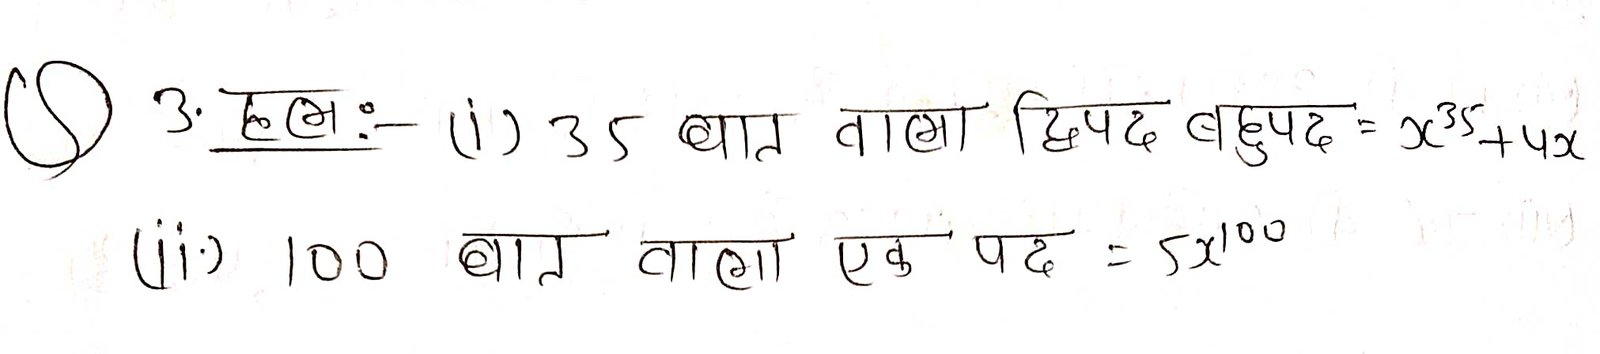 3. हल :- (i) 35 घात वाला द्विपद बहुपद = x³⁵ + 4x
(ii.) 100 घात वाला एक पद = 5x¹⁰⁰